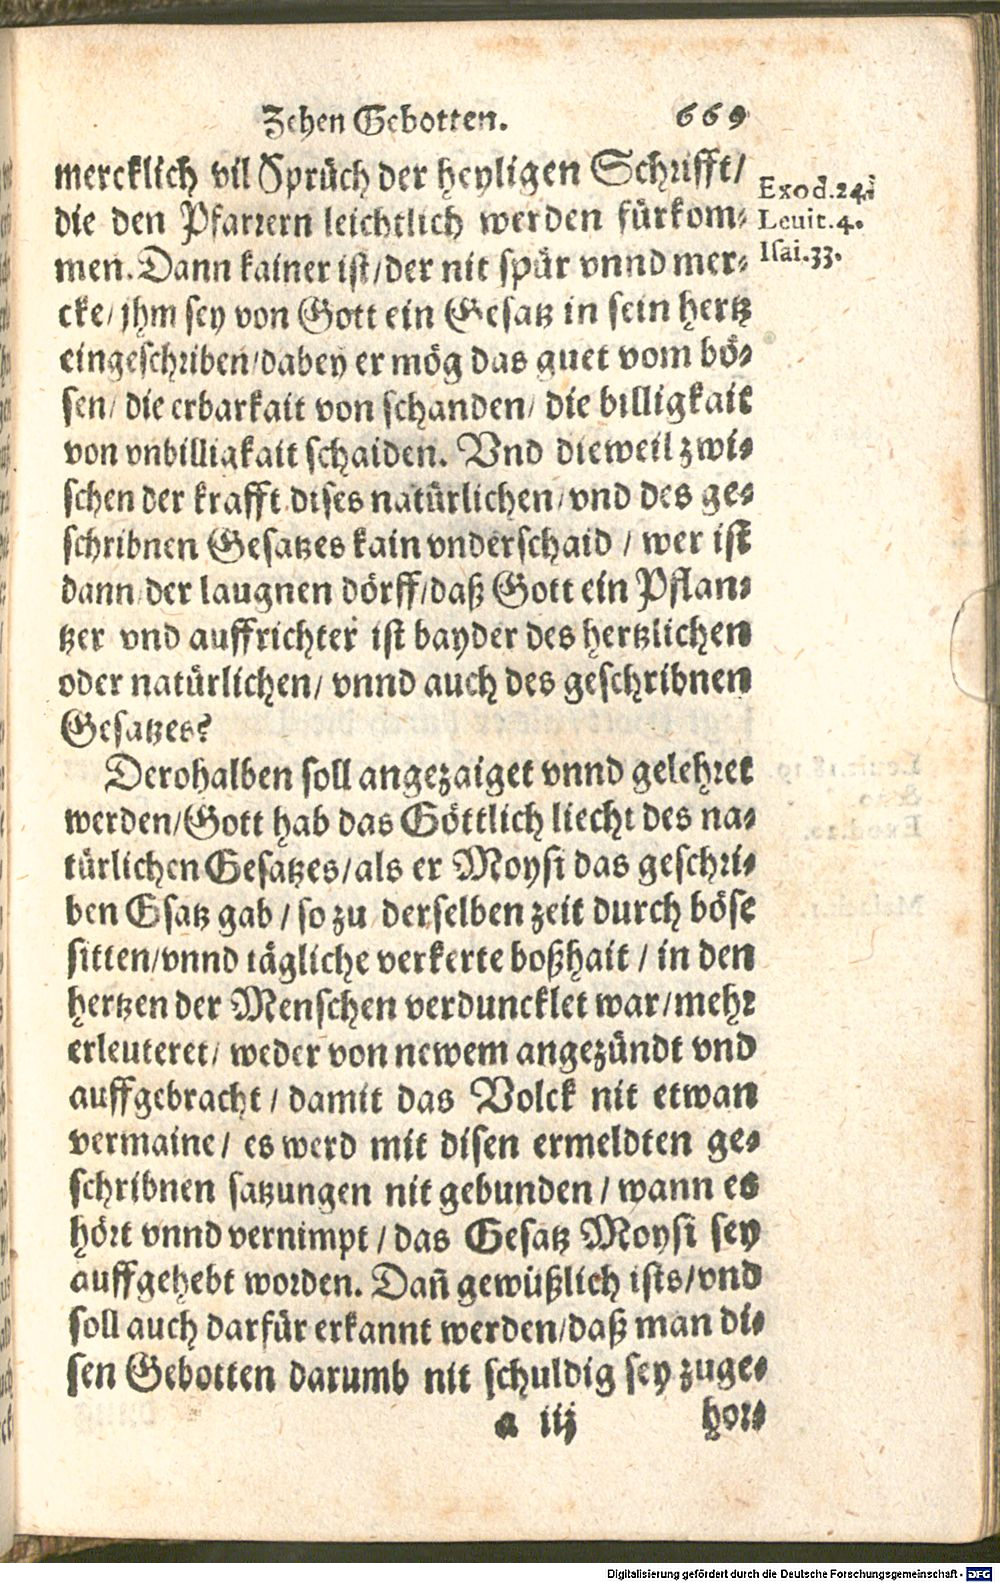 Zehen Gebotten. 669
mercklich vil Sprüch der heyligen Schrifft/
die den Pfarrern leichtlich werden fürkom-
men. Dann kainer ist/der nit spür vnnd mer-
cke/jhm sey von Gott ein Gesatz in sein hertz
eingeschriben/dabey er mög das guet vom bö-
sen/ die erbarkait von schanden/ die billigkait
von vnbilligkait schaiden. Vnd dieweil zwi-
schen der krafft dises natürlichen/vnd des ge-
schribnen Gesatzes kain vnderschaid / wer ist
dann/der laugnen dörff/daß Gott ein Pflan-
tzer vnd auffrichter ist bayder des hertzlichen
oder natürlichen/ vnnd auch des geschribnen
Gesatzes?
Derohalben soll angezaiget vnnd gelehret
werden/Gott hab das Göttlich liecht des na-
türlichen Gesatzes/als er Moysi das geschri-
ben Gsatz gab / so zu derselben zeit durch böse
sitten/vnnd tägliche verkerte boßhait / in den
hertzen der Menschen verduncklet war/mehr
erleuteret/ weder von newem angezündt vnd
auffgebracht / damit das Volck nit etwan
vermaine/ es werd mit disen ermeldten ge-
schribnen satzungen nit gebunden / wann es
hört vnnd vernimpt / das Gesatz Moysi sey
auffgehebt worden. Dañ gewüßlich ists/vnd
soll auch darfür erkannt werden/daß man di-
sen Gebotten darumb nit schuldig sey zuge-
a iij hor-
Exod.24.
Leuit.4.
Isai.33.
Digitalisierung gefördert durch die Deutsche Forschungsgemeinschaft - DFG